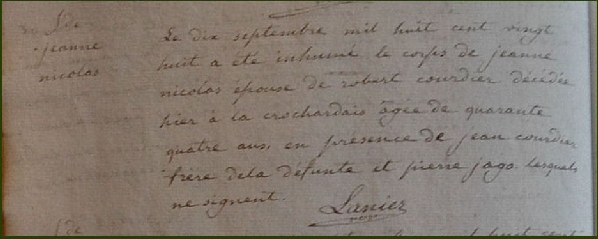 S. de
jeanne
nicolas
Le dix septembre mil huit cent vingt
huit a été inhumé le corps de jeanne
nicolas épouse de robert courdier décédée
hier à la crochardais âgée de quarante
quatre ans, en présence de jean courdier
frère dela défunte et pierre jago lesquels
ne signent.
Lanier
S. de
huit cent